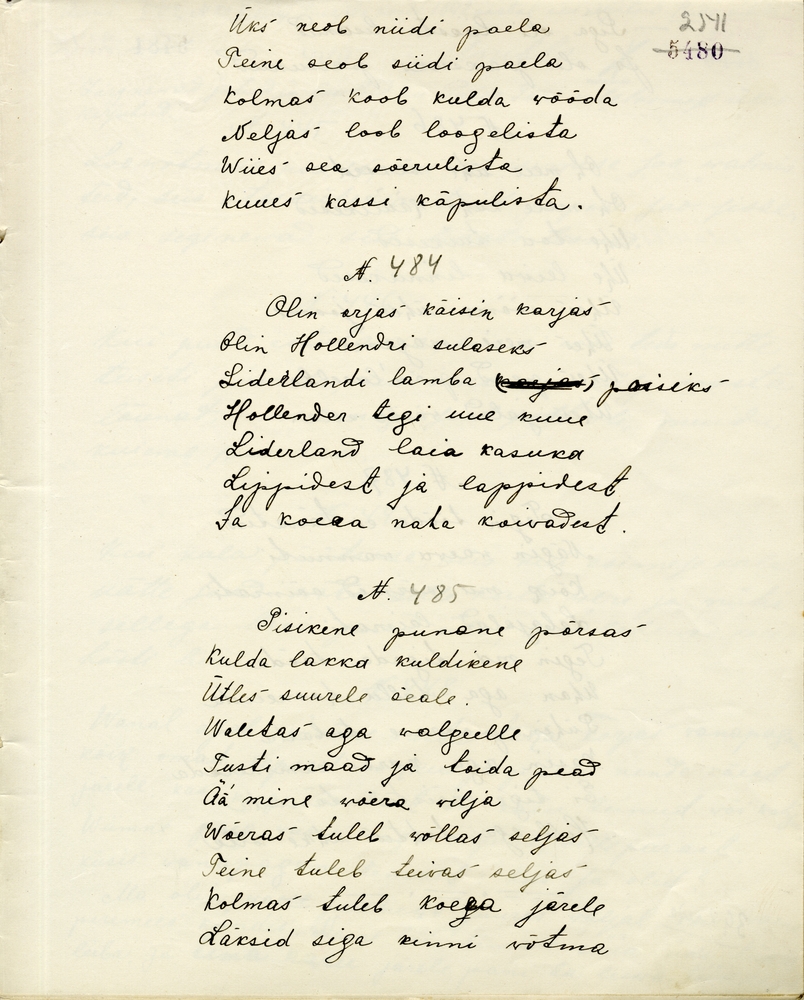 2541
5480
Üks neob niidi paela
Teine seob siidi paela
Kolmas koob kulda wööda
Neljas loob loogelista
Wiies sea sõerulista
Kuues kassi käpulista.
N. 484
Olin orjas käisin karjas
Olin Hollendri sulaseks
Liderlandi lamba (karjas) poisiks
Hollender tegi uue kuue
Liderland laia kasuka
Lippidest ja lappidest
Ja koera naha koivadest.
N. 485
Pisikene punane põrsas
Kulda lakka kuldikene
Ütles suurele seale.
Waletas aga walgeelle
Tusti maad ja toida pead
Ää mine wõera wilja
Wõeras tuleb wõllas seljas
Teine tuleb teivas seljas
Kolmas tuleb koega järele
Läksid siga kinni wõtma